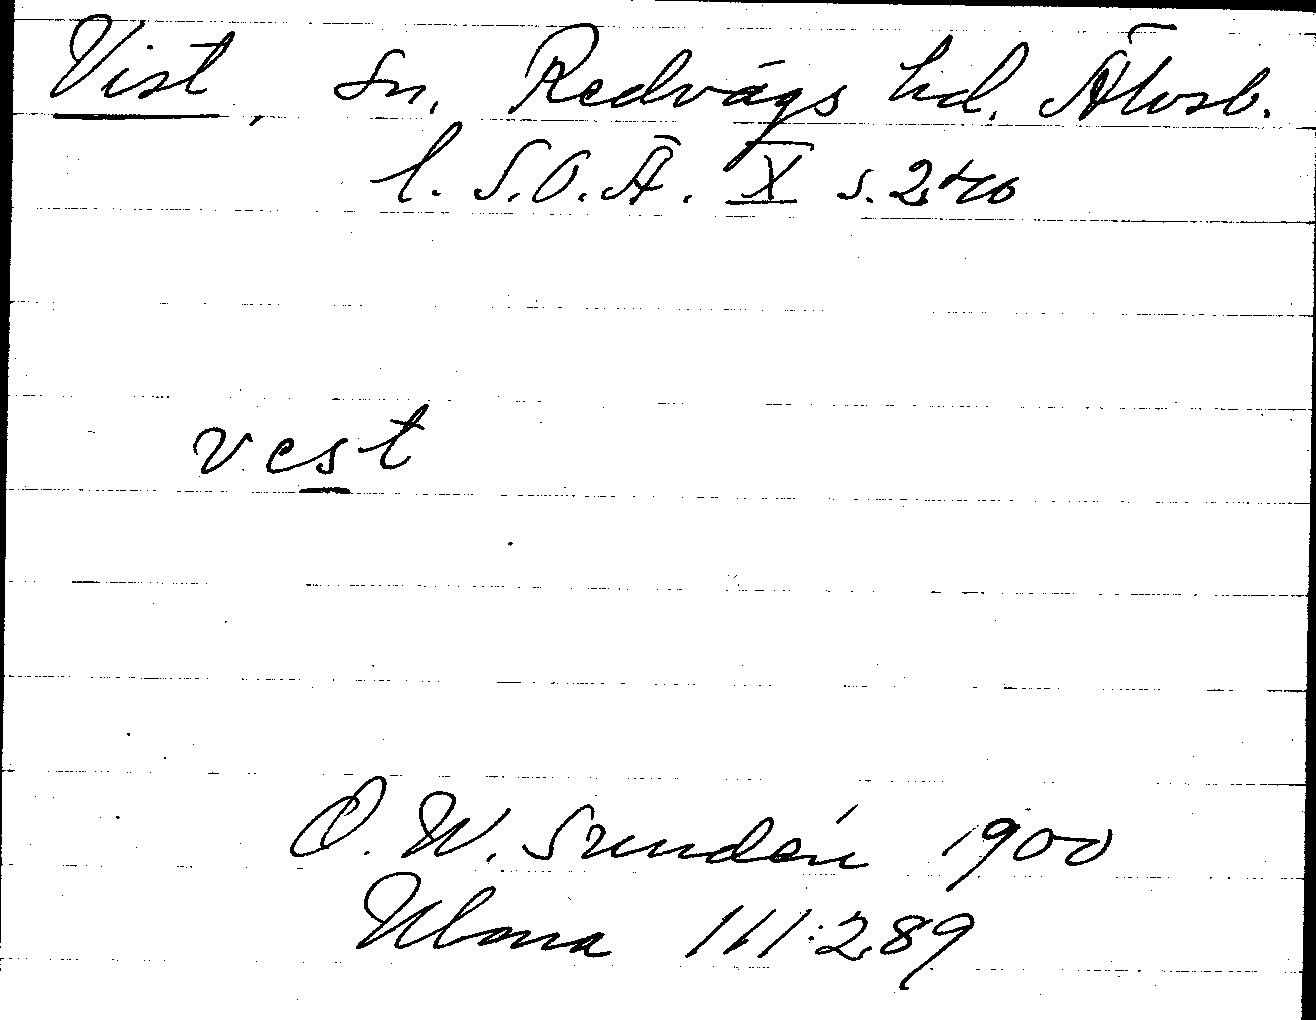 Vist, Sn. Redvägs hd. Älvsb.
l. S.O.Ä. X s. 240
vest
D. W. Sundén 1900
Ulona 111:289